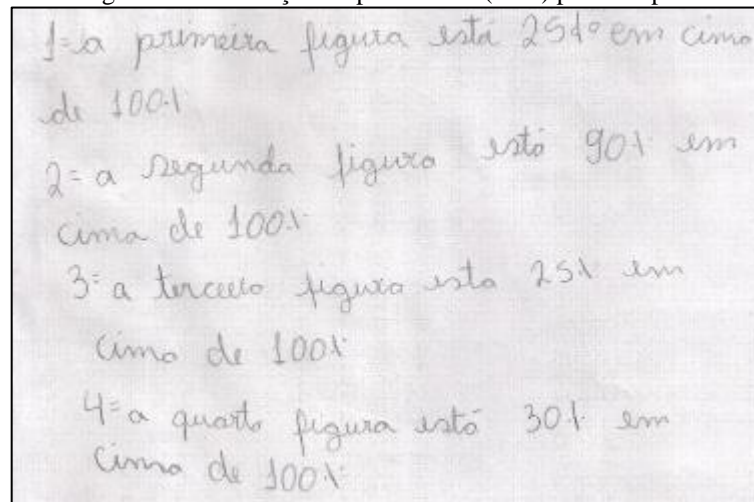 1= a primeira figura está 25% em cima
de 100%
2= a segunda figura está 90% em
cima de 100%
3= a terceira figura esta 25% em
cima de 100%
4= a quarta figura está 30% em
cima de 100%